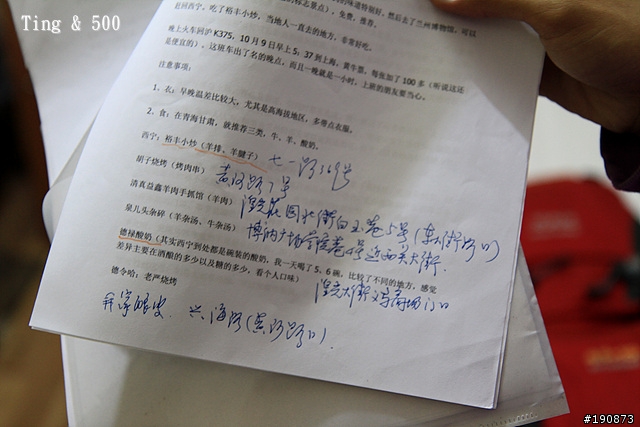 Ting & 500
返回西宁，吃了裕丰小炒，当地人一直去的地方，非常好吃。
晚上火车回沪K375，10月9日早上5：37到上海，黄牛票，每张加了100多（听说这还
是便宜的），这班车出了名的晚点，而且一晚就是一小时，上班的朋友要当心。
注意事项：
1. 衣：早晚温差比较大，尤其是高海拔地区，多带点衣服。
2. 食：在青海甘肃，就推荐三类，牛、羊、酸奶。
西宁：裕丰小炒（羊排、羊腱子） 七一路369号
胡子烧烤（烤肉串） 黄河路7号
清真益鑫羊肉手抓馆（羊肉） 园北街白玉巷5号（东大街路口）
泉儿头杂碎（羊杂汤、牛杂汤） 博物广场 巷4号近西关大街.
德禄酸奶（其实西宁到处都是碗装的酸奶，我一天喝了5、6碗，比较了不同的地方，感觉
差异主要在酒酸的多少以及糖的多少，看个人口味） 大街文亨商场门口
德令哈：老严烧烤
兴海路（黄河路口）.
#190873